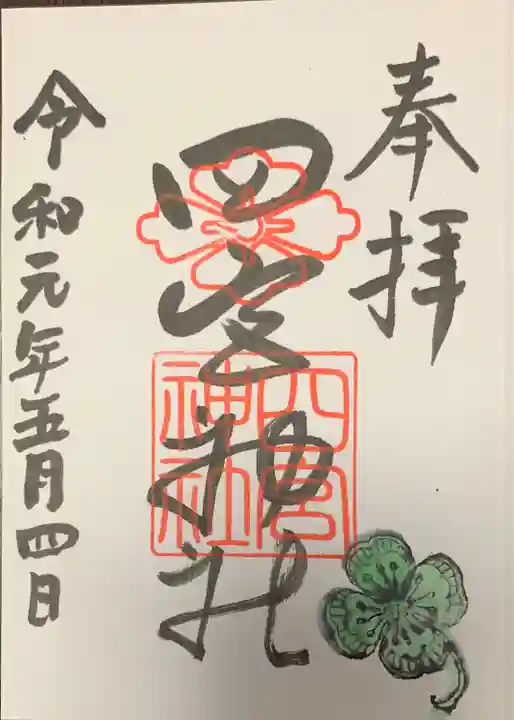 奉拝
四宮神社
四宮
神社
令和元年五月四日